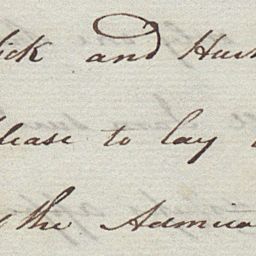 sick and Hur
lease to lay
the Admira